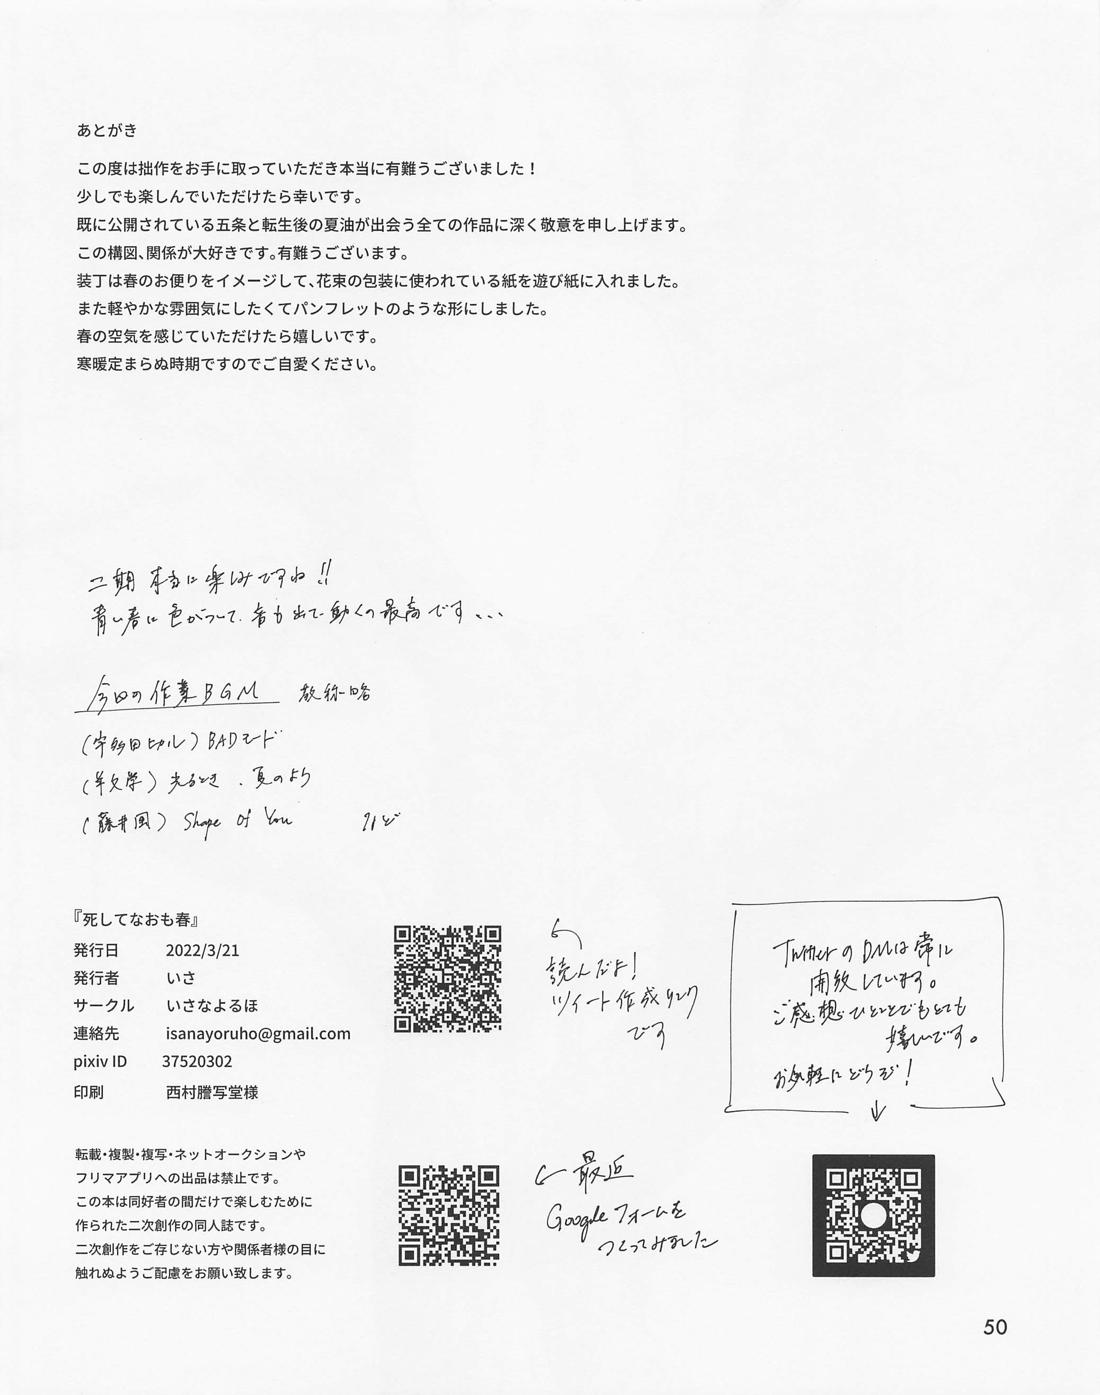 あとがき
この度は拙作をお手に取っていただき本当に有難うございました！
少しでも楽しんでいただけたら幸いです。
既に公開されている五条と転生後の夏油が出会う全ての作品に深く敬意を申し上げます。
この構図、関係が大好きです。有難うございます。
装丁は春のお便りをイメージして、花束の包装に使われている紙を遊び紙に入れました。
また軽やかな雰囲気にしたくてパンフレットのような形にしました。
春の空気を感じていただけたら嬉しいです。
寒暖定まらぬ時期ですのでご自愛ください。
二期 本当に楽しみですね!!
青い春に色がついて、音も出て動くの最高です、、、
今回の作業BGM 敬称略
(宇多田ヒカル) BADモード
(羊文学) 光るとき、夏のよう
(藤井風) Shape Of You など
『死してなおも春』
発行日 2022/3/21
発行者 いさ
サークル いさなよるほ
連絡先 isanayoruho@gmail.com
pixiv ID 37520302
印刷 西村謄写堂様
読んだよ!
ツイート作成リンク
です
TwitterのDMは常に
開放しています。
ご感想ひとことでもとても
嬉しいです。
お気軽にどうぞ!
転載・複製・複写・ネットオークションや
フリマアプリへの出品は禁止です。
この本は同好者の間だけで楽しむために
作られた二次創作の同人誌です。
二次創作をご存じない方や関係者様の目に
触れぬようご配慮をお願い致します。
最近
Googleフォームを
つくってみました
50